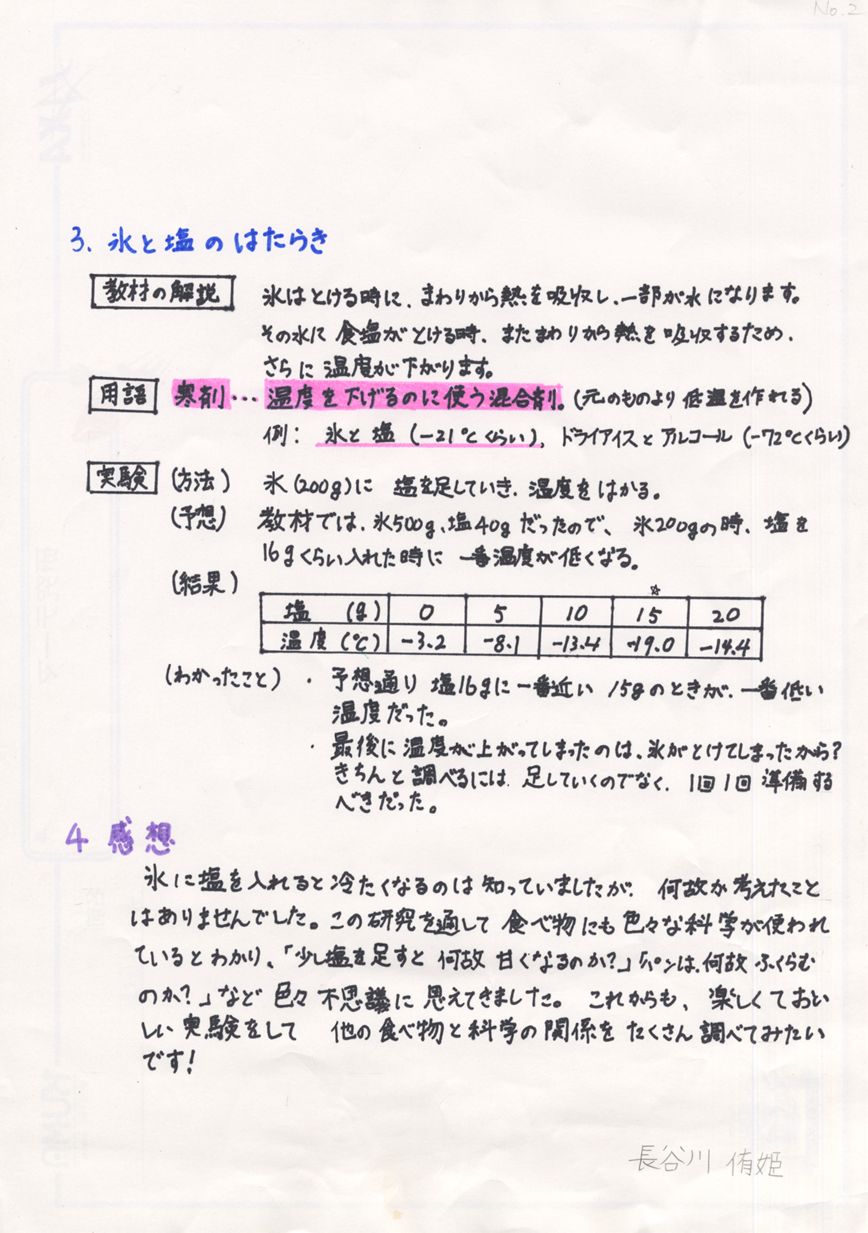 No.2
3. 氷と塩のはたらき
教材の解説 氷はとける時に、まわりから熱を吸収し、一部が水になります。
その水に食塩がとける時、またまわりから熱を吸収するため、
さらに温度が下がります。
用語 寒剤…温度を下げるのに使う混合剤。(元のものより低温を作れる)
例: 氷と塩(-21℃くらい)、ドライアイスとアルコール(-72℃くらい)
実験 (方法) 氷(200g)に 塩を足していき、温度をはかる。
(予想) 教材では、氷500g、塩40gだったので、氷200gの時、塩を
16gくらい入れた時に 一番温度が低くなる。
(結果)
☆
塩 (g) 0 5 10 15 20
温度(℃) -3.2 -8.1 -13.4 -19.0 -14.4
(わかったこと) ・予想通り 塩16gに一番近い 15gのときが、一番低い
温度だった。
・最後に温度が上がってしまったのは、氷がとけてしまったから?
きちんと調べるには 足していくのでなく、1回1回準備する
べきだった。
4 感想
氷に塩を入れると冷たくなるのは知っていましたが、何故か考えたこと
はありませんでした。この研究を通して食べ物にも色々な科学が使われ
ているとわかり、「少し塩を足すと何故甘くなるのか?」「パンは、何故ふくらむ
のか?」など色々不思議に思えてきました。これからも、楽しくておい
しい実験をして 他の食べ物と科学の関係をたくさん調べてみたい
です!
長谷川 侑姫